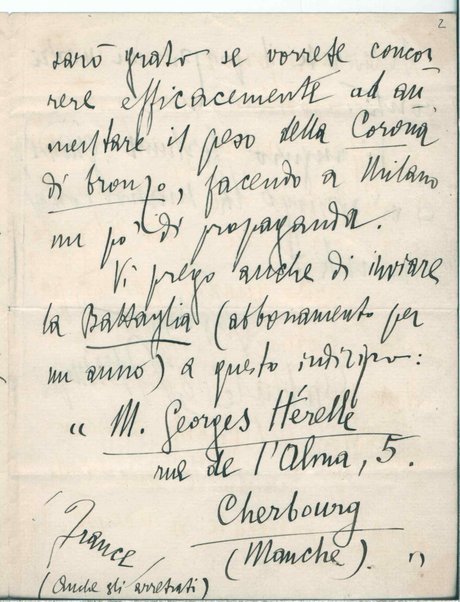 2
sarò grato se vorrete concor
rere efficacemente ad au
mentare il peso della Corona
di bronzo, facendo a Milano
un po' di propaganda.
Vi prego anche di inviare
la Battaglia (abbonamento per
un anno) a questo indirizzo:
„ M. Georges Hérelle
rue de l'Alma, 5.
Cherbourg
(Manche). „
France
(Anche gli arretrati)